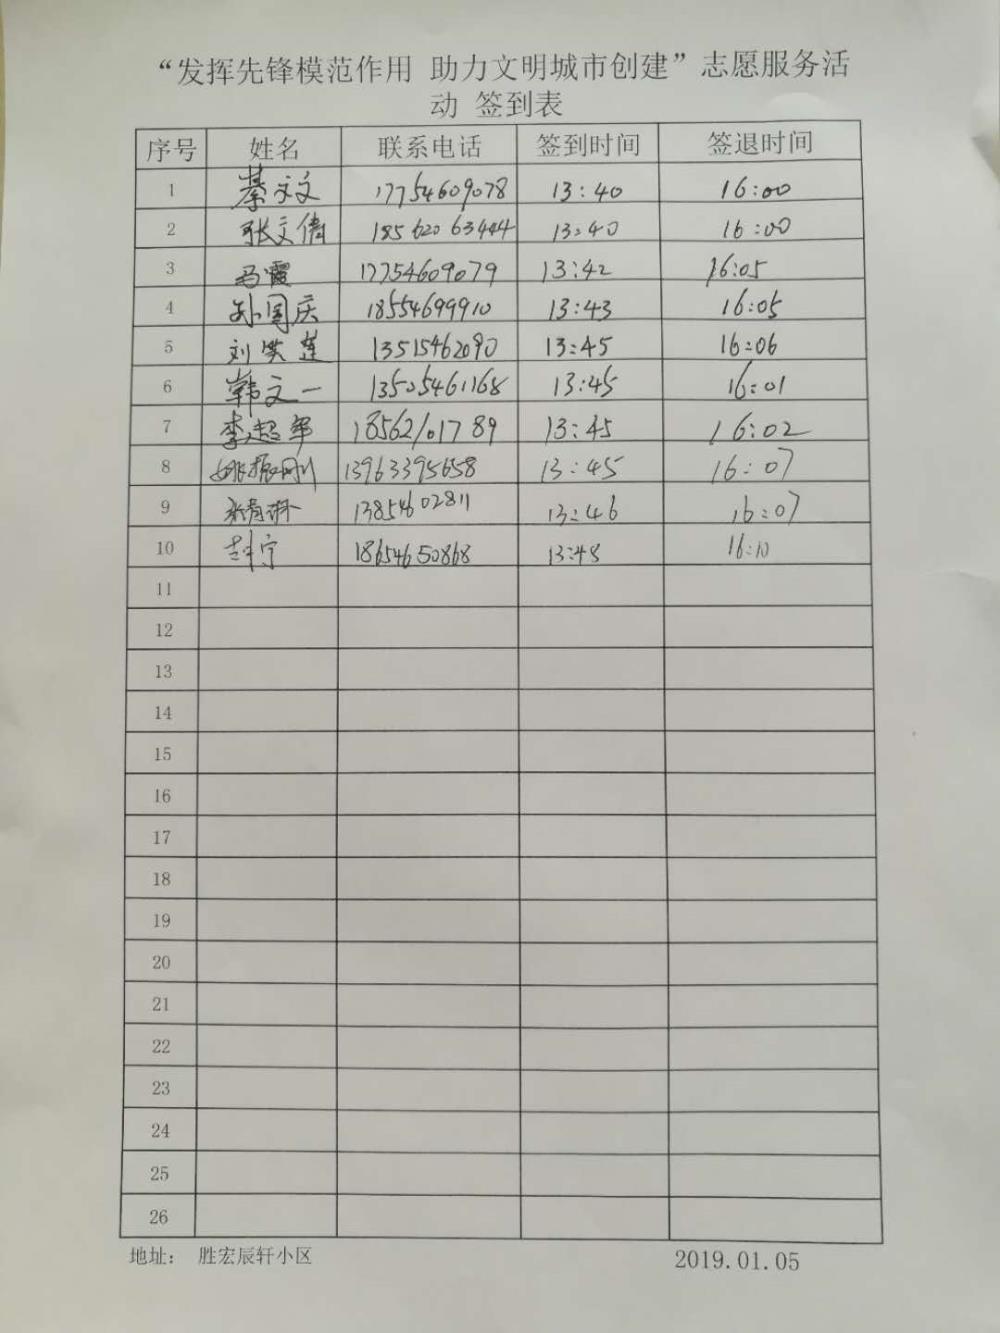 “发挥先锋模范作用 助力文明城市创建”志愿服务活
动 签到表
序号 姓名 联系电话 签到时间 签退时间
1 綦文文 17754609078 13:40 16:00
2 张文倩 18562063444 13:40 16:00
3 冯霞 17754609079 13:42 16:05
4 孙国庆 18554699910 13:43 16:05
5 刘笑莲 13515462090 13:45 16:06
6 韩文一 13505461168 13:45 16:01
7 李超军 18562101789 13:45 16:02
8 姚振刚 13963395658 13:45 16:07
9 张青琳 13854602811 13:46 16:07
10 宁 18654650868 13:48 16:10
11
12
13
14
15
16
17
18
19
20
21
22
23
24
25
26
地址： 胜宏辰轩小区 2019.01.05